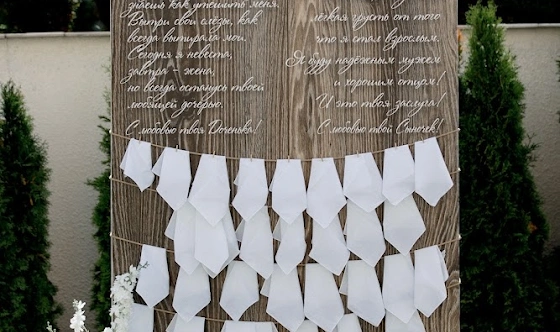 знаешь как утешить меня.
Вытри свои слёзы, как
всегда вытирала мои.
Сегодня я невеста,
завтра - жена,
но всегда останусь твоей
любящей дочерью.
С любовью твоя Доченька!
лёгкая грусть от того
что я стал взрослым.
Я буду надёжным мужем
и хорошим отцом!
И это твоя заслуга!
С любовью твой Сыночек!